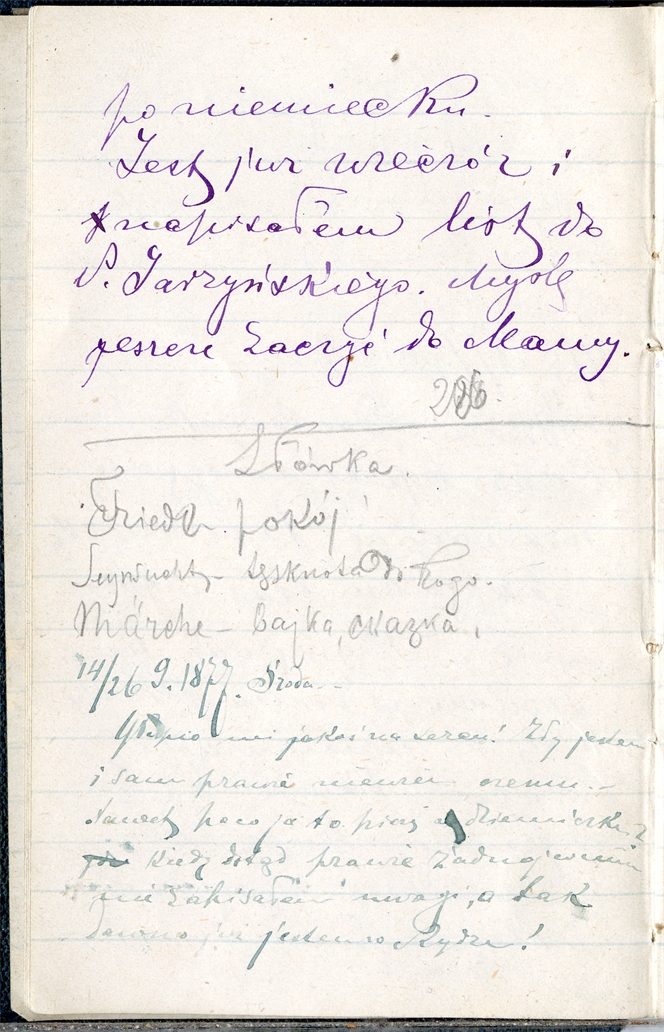 po niemiecku.
Jest już wieczór i
napisałem list do
P. Jarzyńskiego. Myślę
jeszcze zacząć do Mamy.
Słówka.
Friede pokój
Seynsucht – tęsknota do kogo.
Märche – bajka, skazka.
14/26 9. 1877. Środa –
Głupio mi jakoś na sercu! Zły jestem
i sam prawie niewiem czemu. –
Nawet poco ja to piszę w dzienniczku?
Kiedy dotąd prawie żadnej
nie zapisałem uwagi, a tak
dawno już jestem w Rydze!